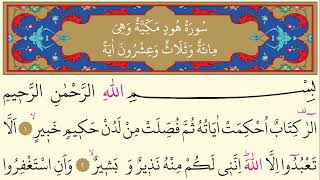 سُورَةُ هُودٍ مَكِّيَّةٌ وَهِيَ
مِائَةٌ وَثَلَاثٌ وَعِشْرُونَ اٰيَةً
بِسْــــمِ اللّٰهِ الرَّحْمٰنِ الرَّحِيمِ
الٓرٰ كِتَابٌ اُحْكِمَتْ اٰيَاتُهُ ثُمَّ فُصِّلَتْ مِنْ لَدُنْ حَكِيمٍ خَبِيرٍۙ ﴿١﴾ اَلَّا
تَعْبُدُٓوا اِلَّا اللّٰهَۜ اِنَّنِي لَكُمْ مِنْهُ نَذِيرٌ وَ بَشِيرٌۙ ﴿٢﴾ وَاَنِ اسْتَغْفِرُوا